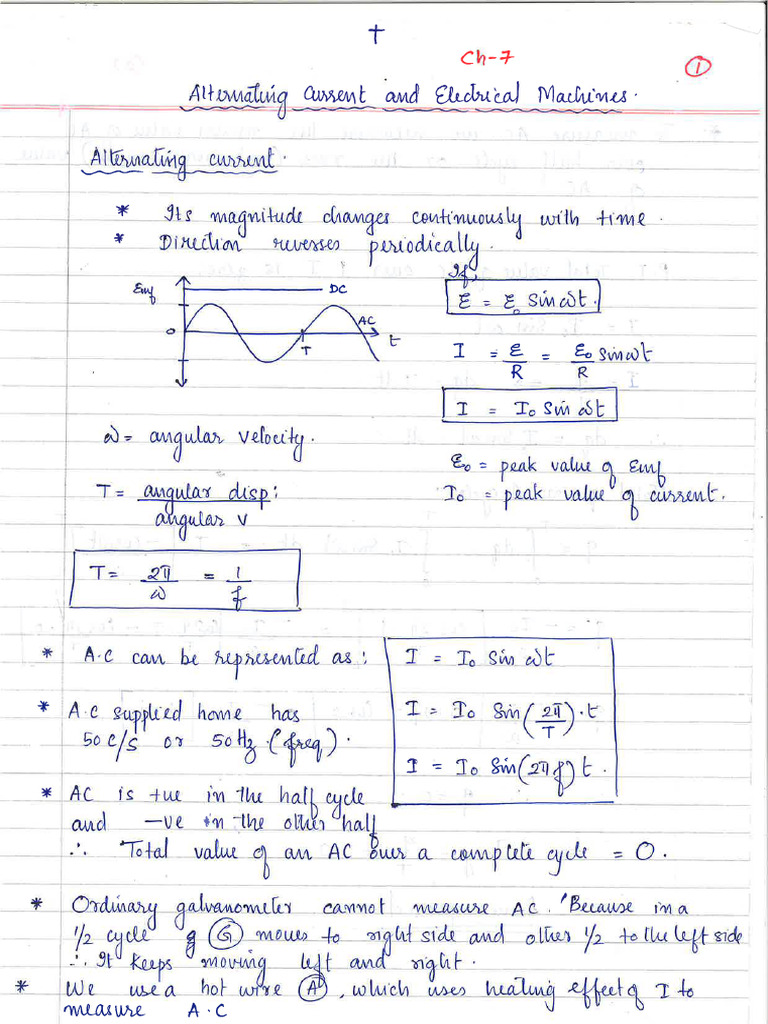 +
Ch-7
1
Alternating Current and Electrical Machines.
Alternating current.
* Its magnitude changes continuously with time.
* Direction reverses periodically.
Emf
DC
O
AC
T
t
If,
Ɛ = Ɛ₀ Sin ωt.
I = Ɛ/R = Ɛ₀ sin ωt/R
I = I₀ Sin ωt
ω = angular velocity.
Ɛ₀ = peak value of Emf
I₀ = peak value of current.
T = angular disp:/angular v
T = 2π/ω = 1/f
* A.C can be represented as:
I = I₀ Sin ωt
I = I₀ Sin (2π/T)·t
I = I₀ Sin (2πf) t.
* A.C supplied home has
50 C/S or 50 Hz. (freq).
* AC is +ve in the half cycle
and -ve in the other half
∴ Total value of an AC over a complete cycle = 0.
* Ordinary galvanometer cannot measure AC. 'Because in a
1/2 cycle G moves to right side and other 1/2 to the left side
∴ It keeps moving left and right.
* We use a hot wire A, which uses heating effect of I to
measure A.C